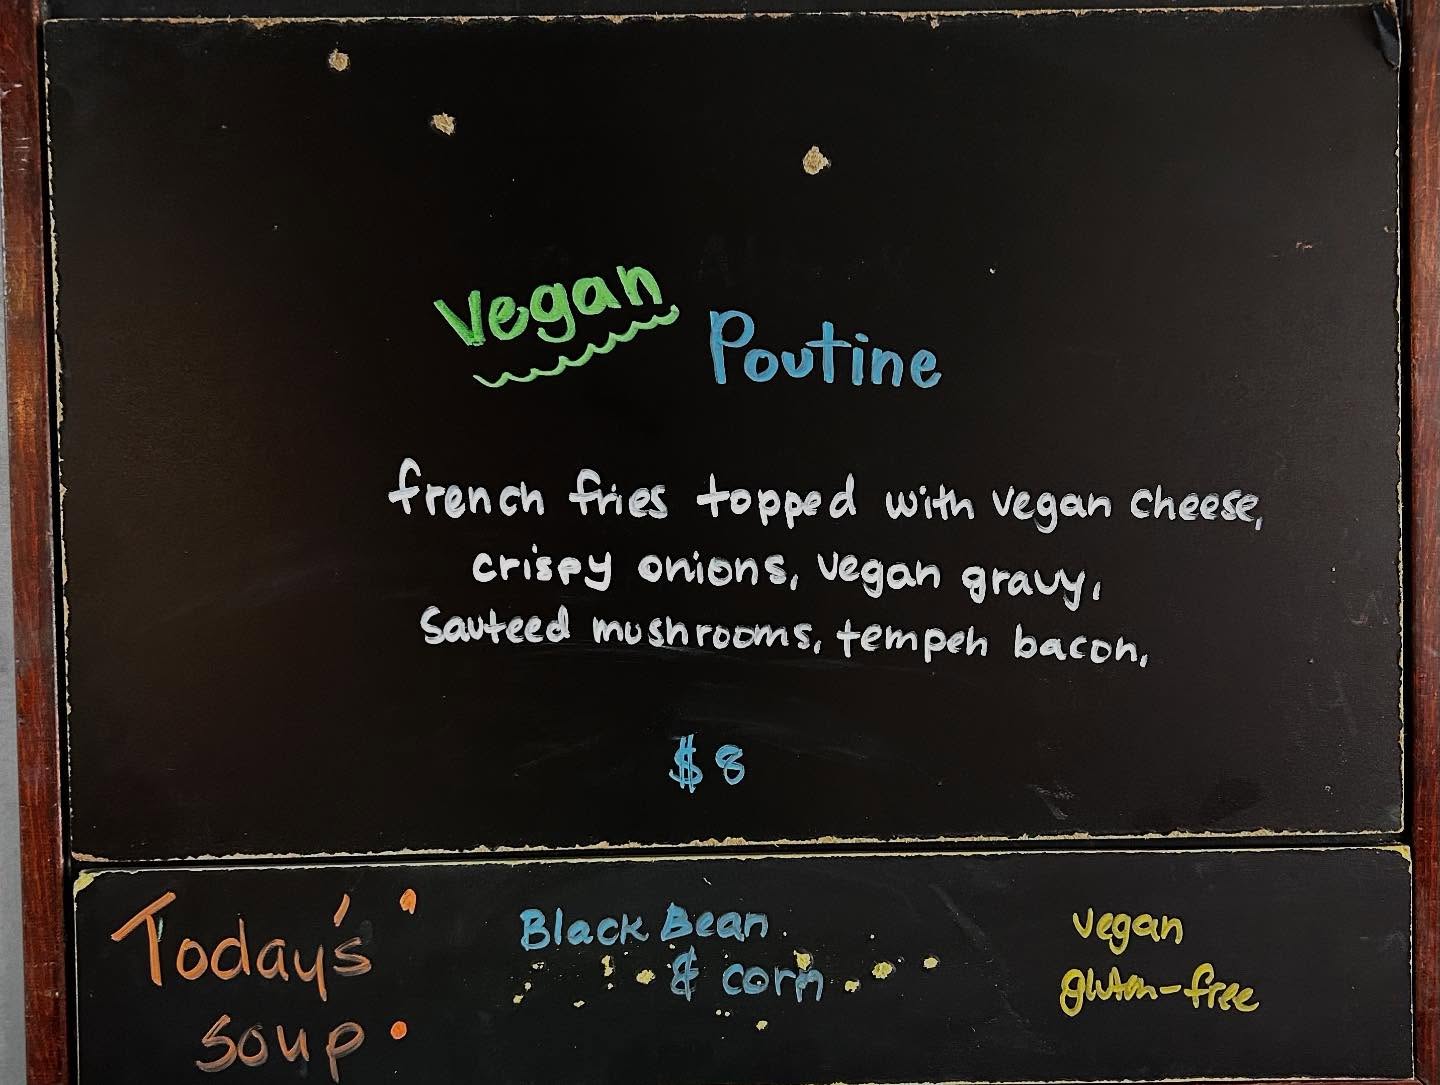 Vegan Poutine
french fries topped with vegan cheese,
crispy onions, vegan gravy,
Sauteed mushrooms, tempeh bacon,
$8
Today's soup:
Black Bean & corn
vegan
gluten-free